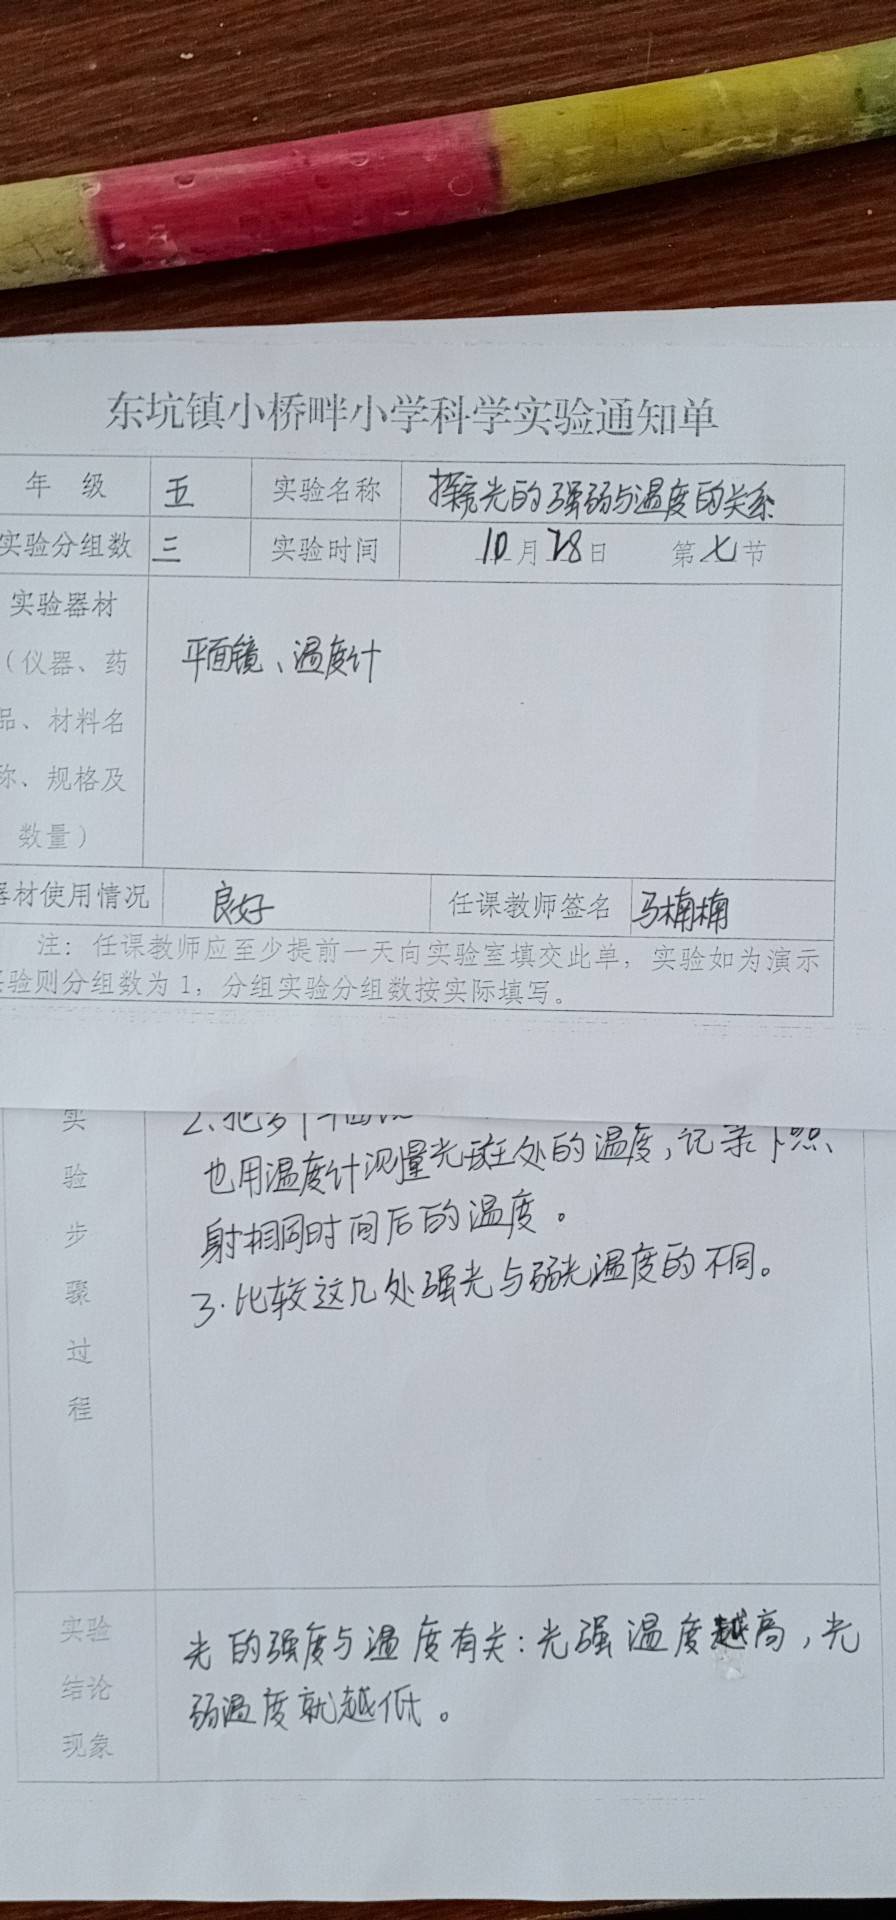 东坑镇小桥畔小学科学实验通知单
年 级 五 实验名称 探究光的强弱与温度的关系
实验分组数 三 实验时间 10月28日 第七节
实验器材
（仪器、药
品、材料名
称、规格及
数量）
平面镜、温度计
器材使用情况 良好 任课教师签名 马楠楠
注：任课教师应至少提前一天向实验室填交此单，实验如为演示
实验则分组数为1，分组实验分组数按实际填写。
实
验
步
骤
过
程
2、把多个平面镜
也用温度计测量光斑处的温度，记录下照
射相同时间后的温度。
3.比较这几处强光与弱光温度的不同。
实验
结论
现象
光的强度与温度有关：光强温度越高，光
弱温度就越低。